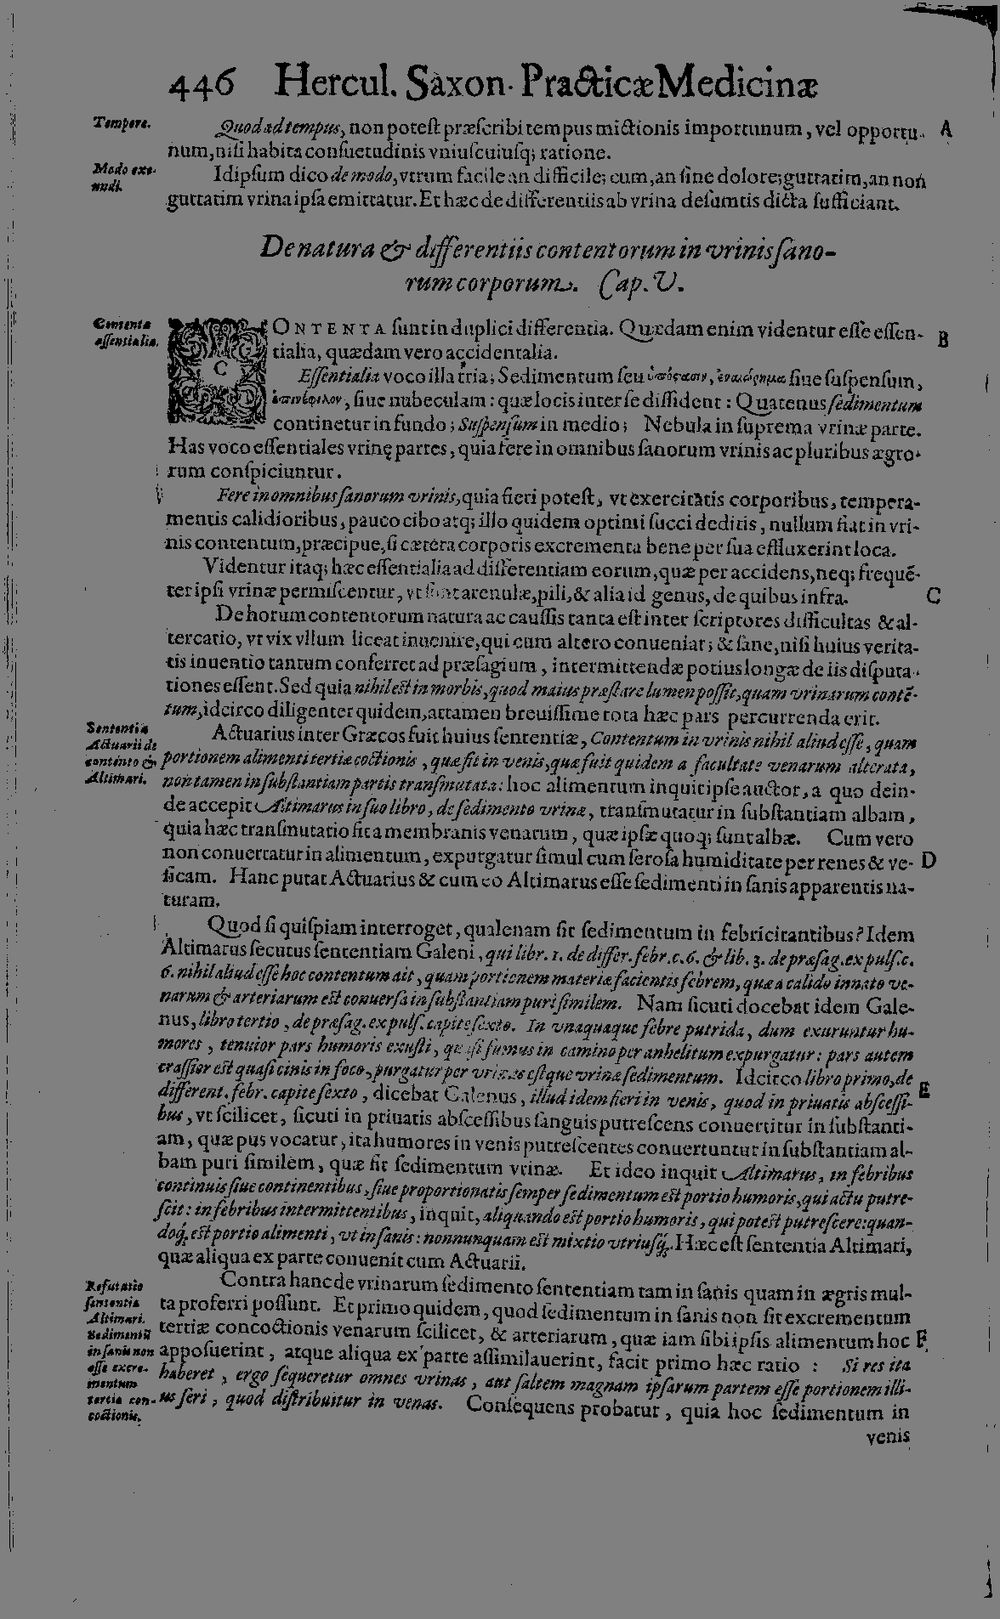 446 Hercul. Saxon. Practicæ Medicinæ
Tempore.
Quod ad tempus, non poteſt præſcribi tempus mictionis importunum, vel opportu- A
num, niſi habita conſuetudinis vniuſcuiuſq; ratione.
Modo exeundi.
Idipſum dico de modo, vtrum facile an difficile; cum, an ſine dolore; guttatim, an non
guttatim vrina ipſa emittatur. Et hæc de differentiis ab vrina deſumtis dicta ſufficiant.
De natura & differentiis contentorum in vrinis ſano-
rum corporum. Cap. V.
Contenta
eſſentialia.
CONTENTA ſunt in duplici differentia. Quædam enim videntur eſſe eſſen- B
tialia, quædam vero accidentalia.
Eſſentialia voco illa tria; Sedimentum ſeu ὑπόςασιν, ἐναιώρημα ſiue ſuſpenſum,
ſiue nubeculam: quæ locis inter ſe diſſident: Quatenus ſedimentum
continetur in fundo; Suſpenſum in medio; Nebula in ſuprema vrinæ parte.
Has voco eſſentiales vrinę partes, quia fere in omnibus ſanorum vrinis ac pluribus ægro-
rum conſpiciuntur.
Fere in omnibus ſanorum vrinis, quia fieri poteſt, vt exercitatis corporibus, tempera-
mentis calidioribus, pauco cibo atq; illo quidem optimi ſucci deditis, nullum fiat in vri-
nis contentum, præcipue, ſi cætera corporis excrementa bene per ſua effluxerint loca.
Videntur itaq; hæc eſſentialia ad differentiam eorum, quæ per accidens, neq; frequē-
ter ipſi vrinæ permiſcentur, vt ſunt arenulæ, pili, & alia id genus, de quibus infra. C
De horum contentorum natura ac cauſſis tanta eſt inter ſcriptores difficultas & al-
tercatio, vt vix vllum liceat inuenire, qui cum altero conueniat; & ſane, niſi huius verita-
tis inuentio tantum conferret ad præſagium, intermittendæ potius longæ de iis diſputa-
tiones eſſent. Sed quia nihil est in morbis, quod maius præſtare lumen poſſit, quam vrinarum contē-
tum, idcirco diligenter quidem, attamen breuiſſime tota hæc pars percurrenda erit.
Sententia
Actuarii de
contento &
Altimari.
Actuarius inter Græcos fuit huius ſententiæ, Contentum in vrinis nihil aliud eſſe, quam
portionem alimenti tertiæ coctionis, quæ fit in venis, quæ fuit quidem a facultate venarum alterata,
non tamen in ſubſtantiam partis tranſmutata: hoc alimentum inquit ipſe auctor, a quo dein-
de accepit Altimarus in ſuo libro, de ſedimento vrinæ, tranſmutatur in ſubſtantiam albam,
quia hæc tranſmutatio fit a membranis venarum, quæ ipſæ quoq; ſunt albæ. Cum vero
non conuertatur in alimentum, expurgatur ſimul cum ſeroſa humiditate per renes & ve- D
ſicam. Hanc putat Actuarius & cum eo Altimarus eſſe ſedimenti in ſanis apparentis na-
turam.
Quod ſi quiſpiam interroget, qualenam ſit ſedimentum in febricitantibus? Idem
Altimarus ſecutus ſententiam Galeni, qui libr. 1. de differ. febr. c. 6. & lib. 3. de præſag. ex pulſ. c.
6. nihil aliud eſſe hoc contentum ait, quam portionem materiæ facientis febrem, quæ a calido innato ve-
narum & arteriarum est conuerſa in ſubſtantiam puri ſimilem. Nam ſicuti docebat idem Gale-
nus, libro tertio, de præſag. ex pulſ. capite ſexto. In vnaquaque febre putrida, dum exuruntur hu-
mores, tenuior pars humoris exuſti, quaſi fumus in camino per anhelitum expurgatur: pars autem
craſſior est quaſi cinis in foco, purgatur per vrinas estque vrinæ ſedimentum. Idcirco libro primo, de
different. febr. capite ſexto, dicebat Galenus, illud idem fieri in venis, quod in priuatis abſceſſi- E
bus, vt ſcilicet, ſicuti in priuatis abſceſſibus ſanguis putreſcens conuertitur in ſubſtanti-
am, quæ pus vocatur, ita humores in venis putreſcentes conuertuntur in ſubſtantiam al-
bam puri ſimilem, quæ fit ſedimentum vrinæ. Et ideo inquit Altimarus, in febribus
continuis ſiue continentibus, ſiue proportionatis ſemper ſedimentum est portio humoris, qui actu putre-
ſcit: in febribus intermittentibus, inquit, aliquando est portio humoris, qui potest putreſcere: quan-
doq; est portio alimenti, vt in ſanis: nonnunquam est mixtio vtriuſq;. Hæc eſt ſententia Altimari,
quæ aliqua ex parte conuenit cum Actuarii.
Refutatio
ſententiæ
Altimari.
Sedimentū
in ſanis non
eſſe excre-
mentum
tertiæ con-
coctionis.
Contra hanc de vrinarum ſedimento ſententiam tam in ſanis quam in ægris mul-
ta proferri poſſunt. Et primo quidem, quod ſedimentum in ſanis non ſit excrementum
tertiæ concoctionis venarum ſcilicet, & arteriarum, quæ iam ſibi ipſis alimentum hoc F
appoſuerint, atque aliqua ex parte aſſimilauerint, facit primo hæc ratio: Si res ita
haberet, ergo ſequeretur omnes vrinas, aut ſaltem magnam ipſarum partem eſſe portionem illi-
us ſeri, quod diſtribuitur in venas. Conſequens probatur, quia hoc ſedimentum in
venis